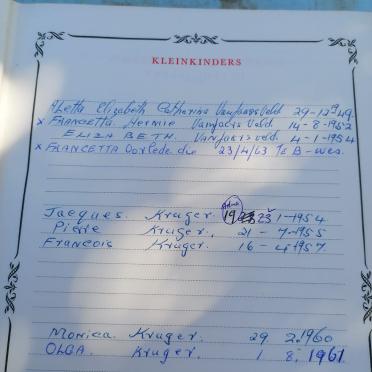 KLEINKINDERS
Aletta Elizabeth Catharina Van Jaarsveld 29-12-49
x FRANCETTA. Hermie Van Jaarsveld 14-8-1952
ELIZA BETH. Van Jaarsveld. 4-1-1954
x FRANCETTA Oorlede die 23/4/63 te B-Wes.
Jacques. Kruger. 23 1-1954
Pierre Kruger. 21-7-1955
Francois Kruger. 16-4-1957
Monica. Kruger. 29 2.1960
OLGA. Kruger. 1 8. 1961